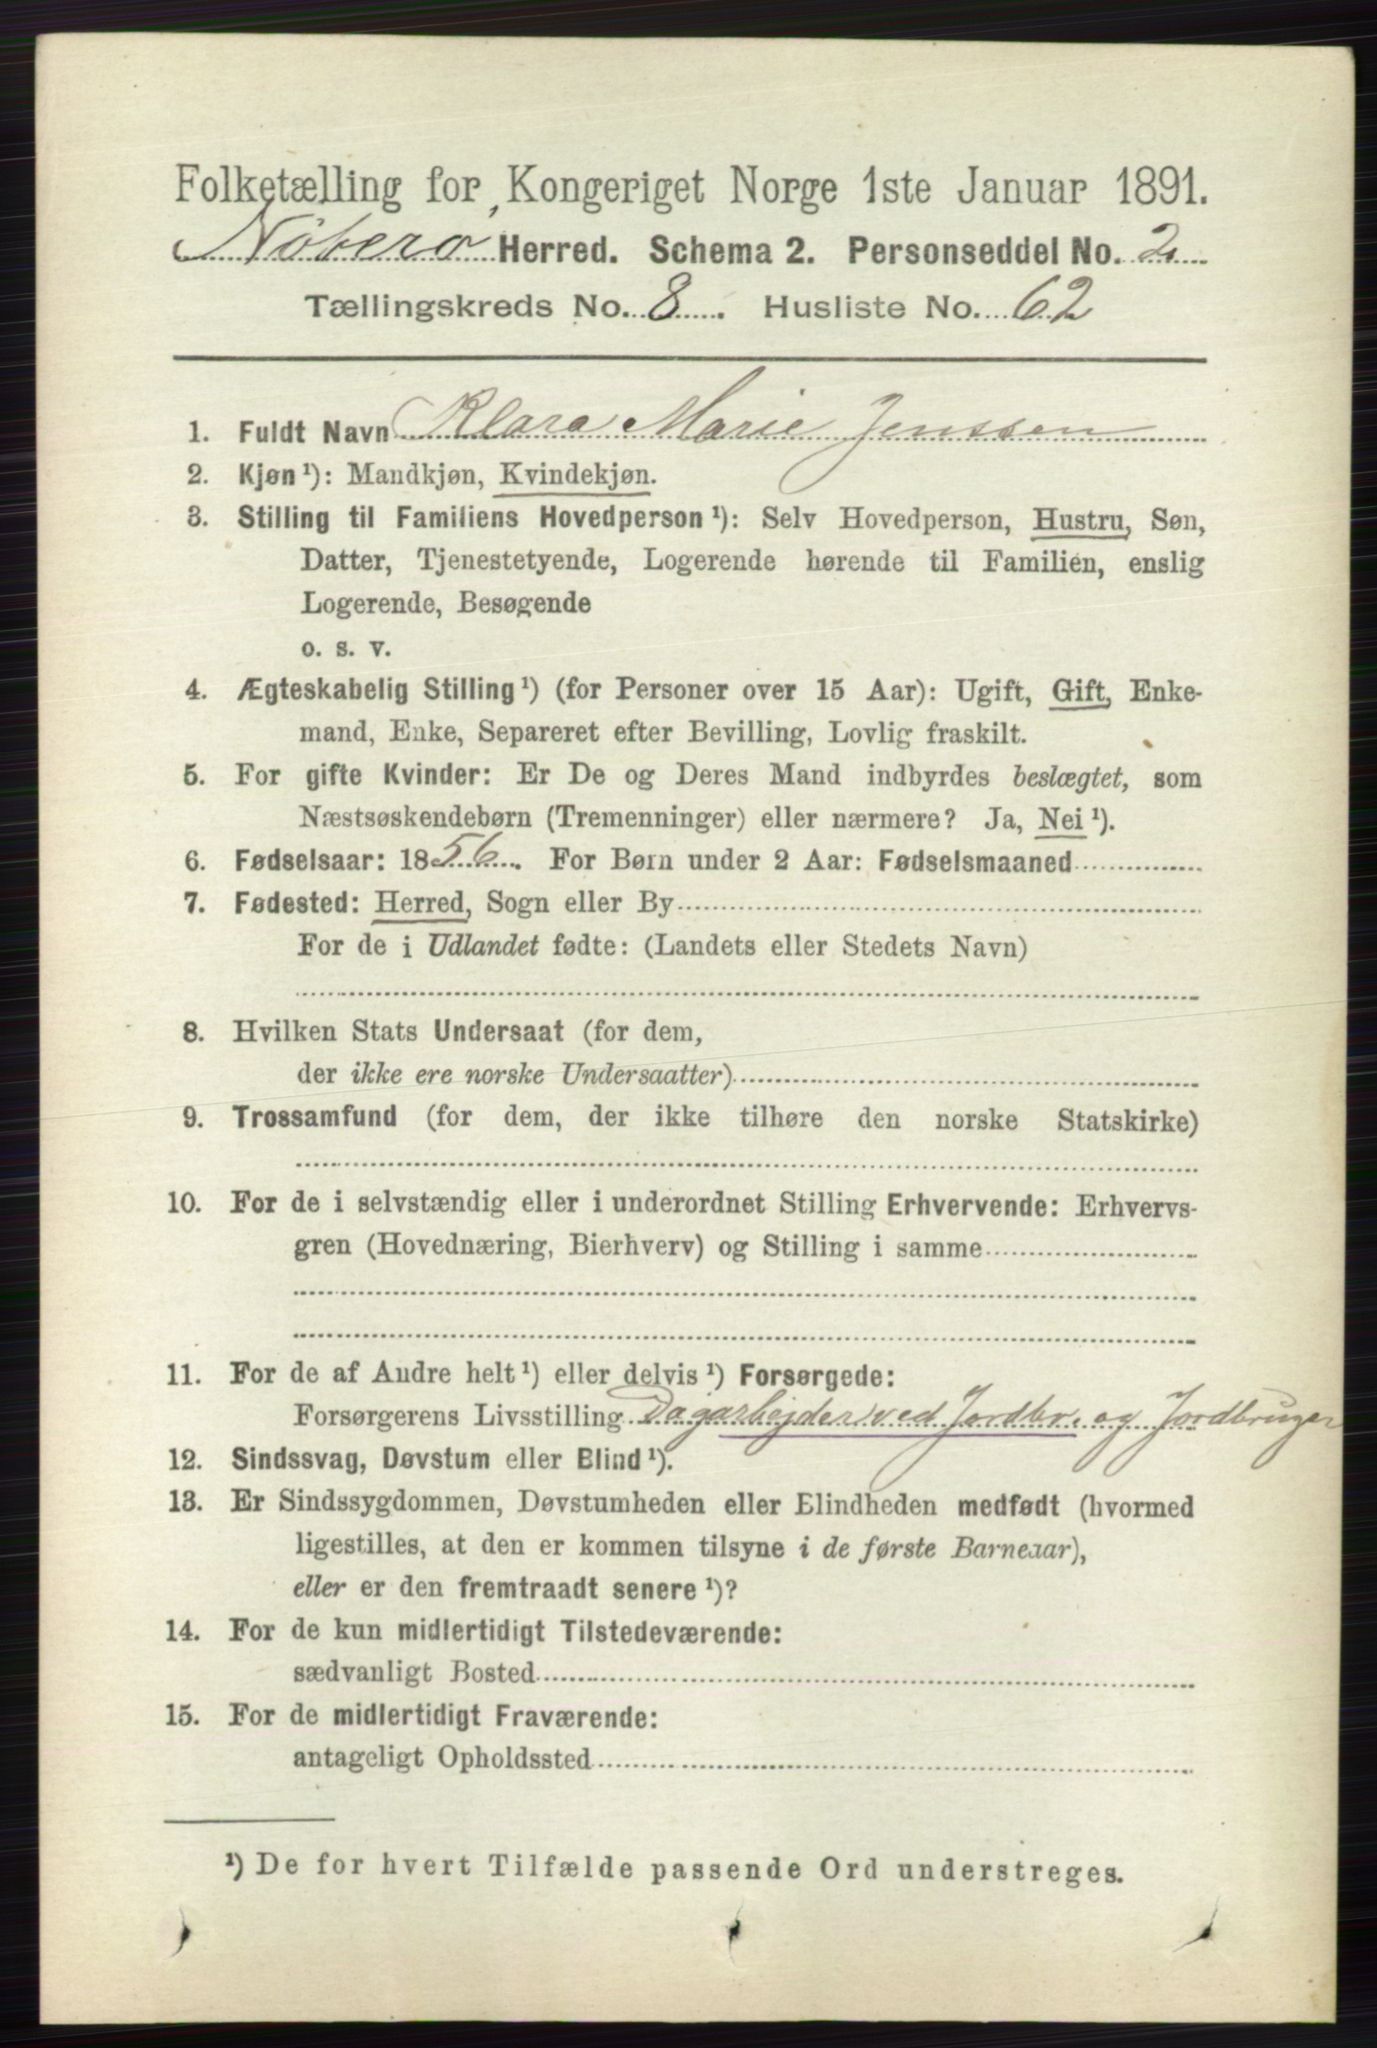 Folketælling for Kongeriget Norge 1ste Januar 1891.
Nøterø Herred. Schema 2. Personseddel No. 2
Tællingskreds No. 8. Husliste No. 62
1. Fuldt Navn Klara Marie Jenssen
2. Kjøn¹): Mandkjøn, Kvindekjøn.
3. Stilling til Familiens Hovedperson¹): Selv Hovedperson, Hustru, Søn,
Datter, Tjenestetyende, Logerende hørende til Familien, enslig
Logerende, Besøgende
o. s. v.
4. Ægteskabelig Stilling¹) (for Personer over 15 Aar): Ugift, Gift, Enke-
mand, Enke, Separeret efter Bevilling, Lovlig fraskilt.
5. For gifte Kvinder: Er De og Deres Mand indbyrdes beslægtet, som
Næstsøskendebørn (Tremenninger) eller nærmere? Ja, Nei¹).
6. Fødselsaar: 1856. For Børn under 2 Aar: Fødselsmaaned
7. Fødested: Herred, Sogn eller By
For de i Udlandet fødte: (Landets eller Stedets Navn)
8. Hvilken Stats Undersaat (for dem,
der ikke ere norske Undersaatter)
9. Trossamfund (for dem, der ikke tilhøre den norske Statskirke)
10. For de i selvstændig eller i underordnet Stilling Erhvervende: Erhvervs-
gren (Hovednæring, Bierhverv) og Stilling i samme
11. For de af Andre helt¹) eller delvis¹) Forsørgede:
Forsørgerens Livsstilling Dagarbejder ved Jordbr. og Jordbruger
12. Sindssvag, Døvstum eller Blind¹).
13. Er Sindssygdommen, Døvstumheden eller Blindheden medfødt (hvormed
ligestilles, at den er kommen tilsyne i de første Barneaar),
eller er den fremtraadt senere¹)?
14. For de kun midlertidigt Tilstedeværende:
sædvanligt Bosted
15. For de midlertidigt Fraværende:
antageligt Opholdssted
¹) De for hvert Tilfælde passende Ord understreges.